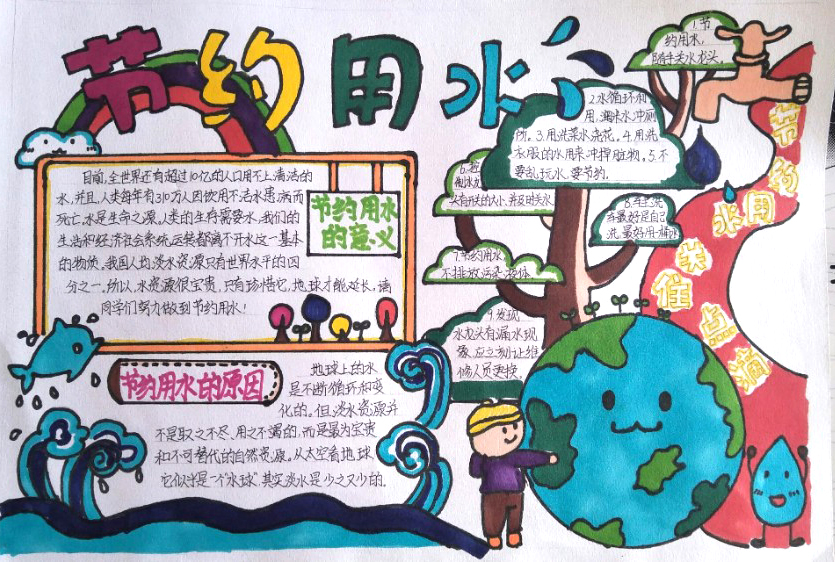 节约用水
目前,全世界还有超过10亿的人口用不上清洁的
水,并且,人类每年有310万人因饮用不洁水患病而
死亡.水是生命之源.人类的生存需要水.我们的
生活和经济社会系统运转都离不开水这一基本
的物质.我国人均淡水资源只有世界水平的四
分之一.所以,水资源很宝贵,只有珍惜它,地球才能延长,请
同学们努力做到节约用水!
节约用水
的意义
节约用水的原因
地球上的水
是不断循环和变
化的。但,淡水资源并
不是取之不尽、用之不竭的,而是最为宝贵
和不可替代的自然资源。从太空看地球
它似乎是一个"水球",其实淡水是少之又少的.
1.节
约用水,
随手关水龙头.
2.水循环利
用,涮抹水冲厕
所。3.用洗菜水浇花。4.用洗
衣服的水用来冲掉脏物。5.不
要乱玩水、要节约.
7.节约用水
不排放污染液体
8.手洗
衣最好是自己
洗
9.发现
水龙头有漏水现
象,应立刻让维
修人员更换
节约用水
关住点滴